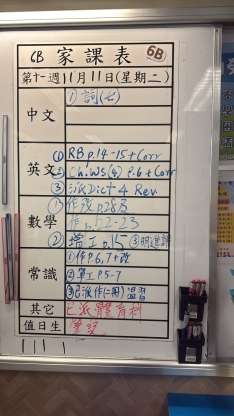 6B 家課表 6B
第十一週 11月11日(星期二)
中文
① 詞(七)
英文
① RB p.14-15 + Corr
② Ch.WS(4) p.6 + Corr
③ 派Dict 4 Rev.
數學
① 作改 p.28
作 p.22-23
② 增工 p.15
常識
① 作P.6,7+改
② 單工 P.5-7
溫習
其它
已派體育科
值日生